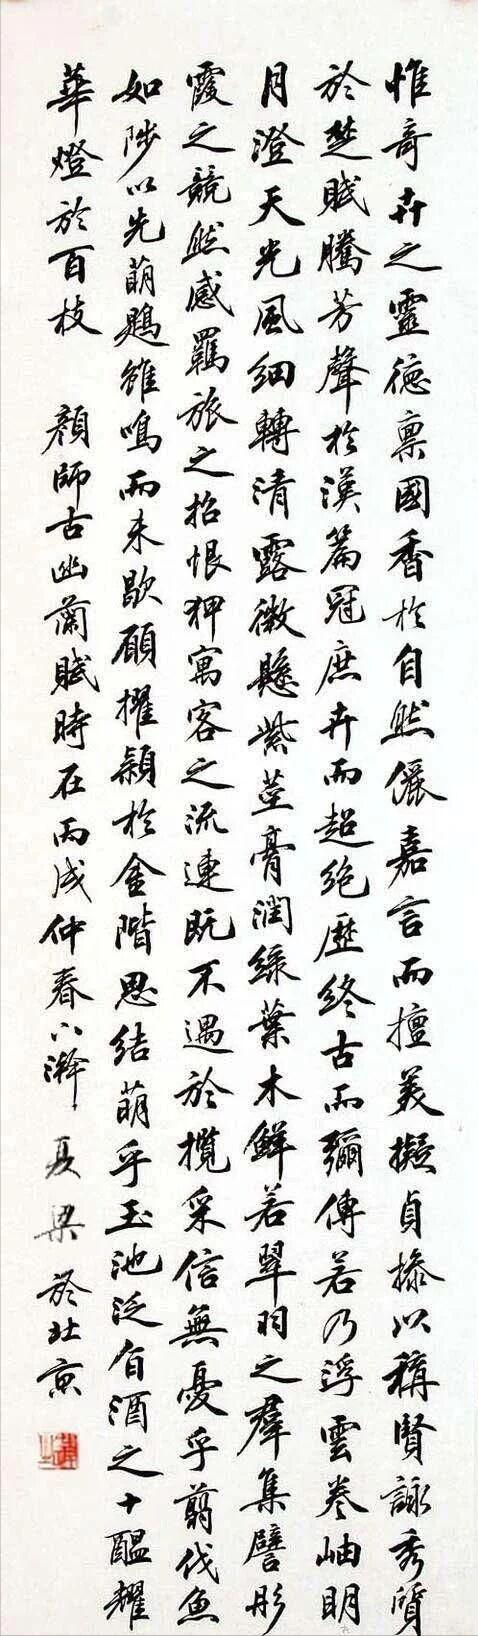 惟奇卉之靈德稟國香於自然儷嘉言而擅美擬貞操以稱賢詠秀質
於楚賦騰芳聲於漢篇冠庶卉而超絕歷終古而彌傳若乃浮雲卷岫明
月澄天光風細轉清露微懸紫莖膏潤綠葉木鮮若翠羽之羣集譬彤
霞之競然感羈旅之招恨狎寓客之流連既不遇於攬采信無憂乎翦伐魚
如陟以先萌鶗雖鳴而未歇願擢穎於金階思結萌乎玉池泛旨酒之十醞耀
華燈於百枝 顏師古幽蘭賦時在丙戌仲春下澣 夏梁 於北京